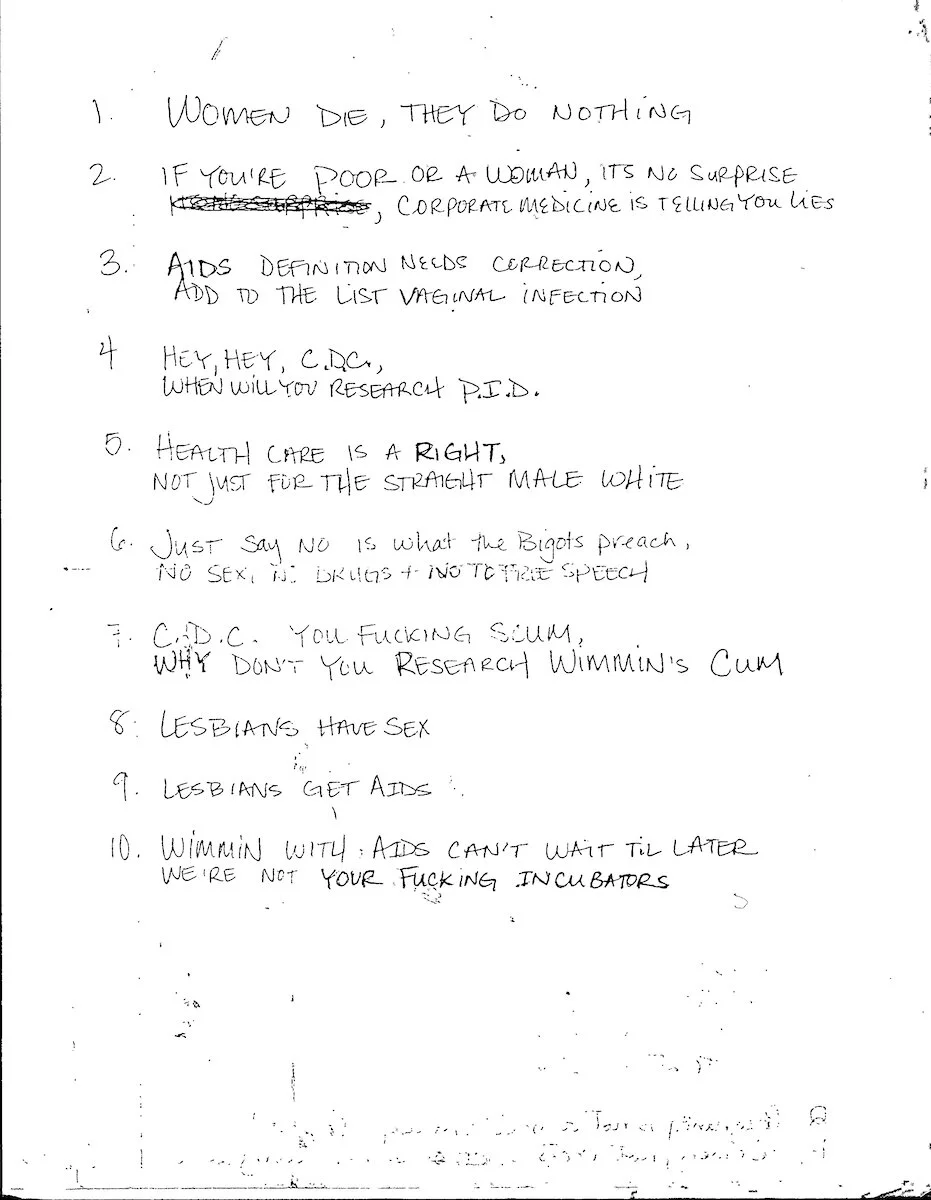 1. WOMEN DIE, THEY DO NOTHING
2. IF YOU'RE POOR OR A WOMAN, ITS NO SURPRISE
, CORPORATE MEDICINE IS TELLING YOU LIES
3. AIDS DEFINITION NEEDS CORRECTION,
ADD TO THE LIST VAGINAL INFECTION
4 HEY, HEY, C.D.C.,
WHEN WILL YOU RESEARCH P.I.D.
5. HEALTH CARE IS A RIGHT,
NOT JUST FOR THE STRAIGHT MALE WHITE
6. JUST SAY NO IS what the Bigots preach,
NO SEX, NO DRUGS + NO TO FREE SPEECH
7. C.D.C. YOU FUCKING SCUM,
WHY DON'T YOU RESEARCH WIMMIN'S CUM
8. LESBIANS HAVE SEX
9. LESBIANS GET AIDS
10. WIMMIN WITH AIDS CAN'T WAIT TIL LATER
WE'RE NOT YOUR FUCKING INCUBATORS